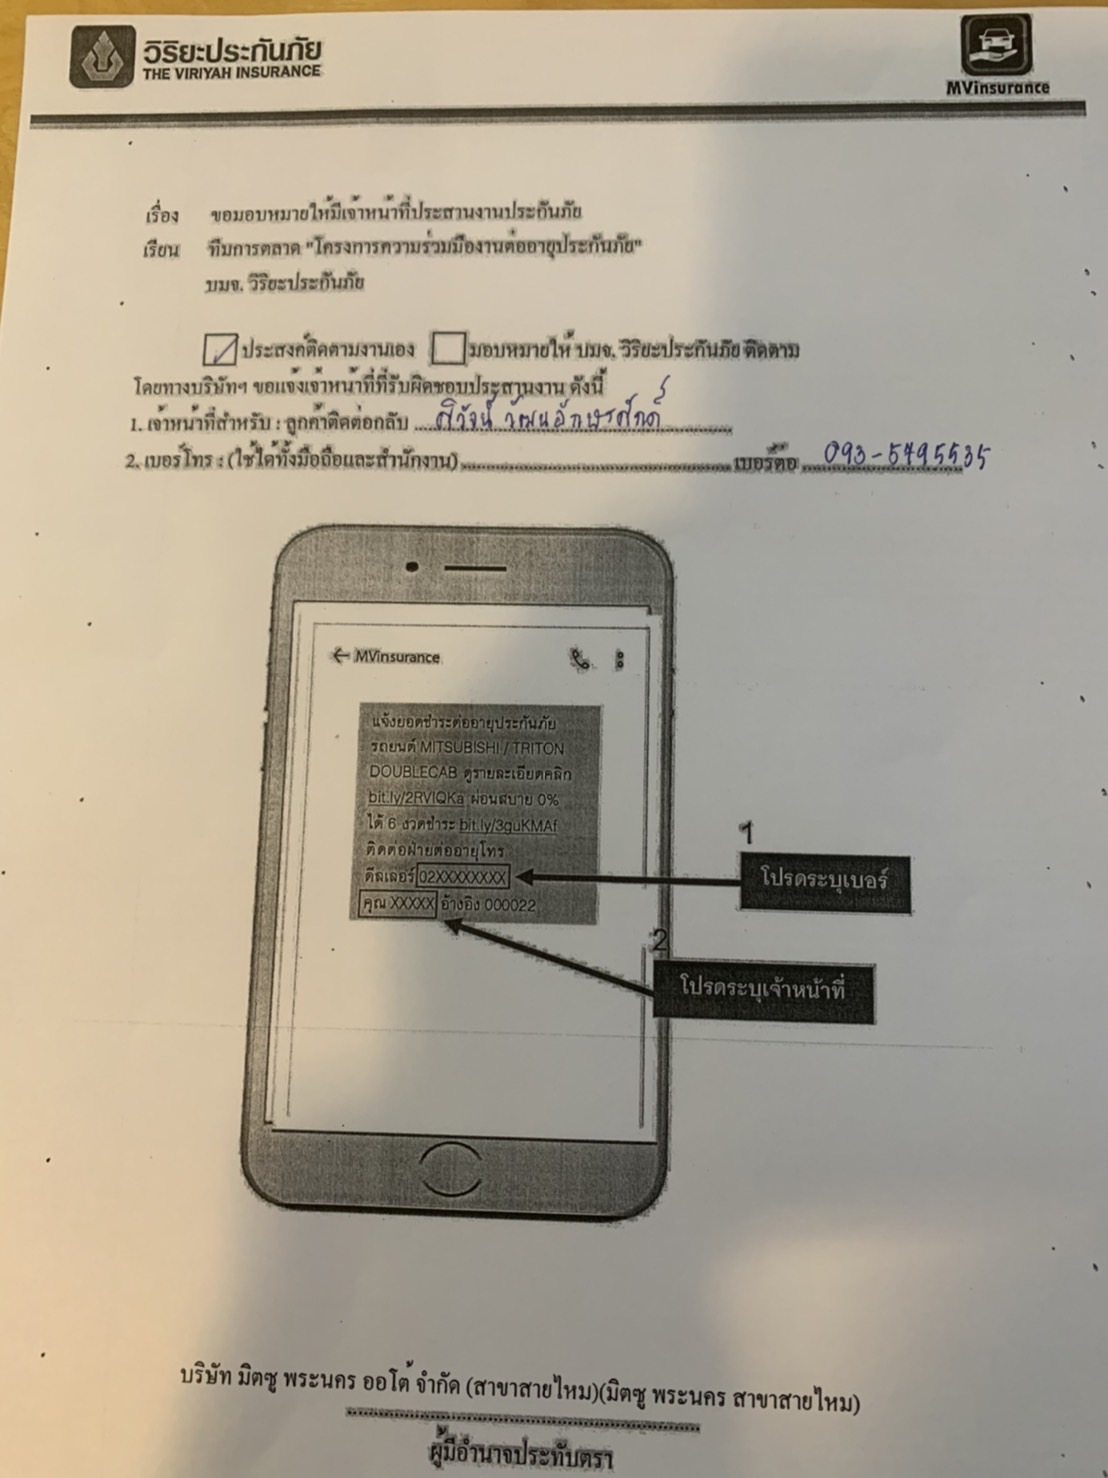 วิริยะประกันภัย
THE VIRIYAH INSURANCE
MVinsurance
เรื่อง ขอมอบหมายให้มีเจ้าหน้าที่ประสานงานประกันภัย
เรียน ทีมการตลาด "โครงการความร่วมมืองานต่ออายุประกันภัย"
บมจ. วิริยะประกันภัย
ประสงค์ติดตามงานเอง มอบหมายให้ บมจ. วิริยะประกันภัย ติดตาม
โดยทางบริษัทฯ ขอแจ้งเจ้าหน้าที่ที่รับผิดชอบประสานงาน ดังนี้
1. เจ้าหน้าที่สำหรับ : ลูกค้าติดต่อกลับ
2. เบอร์โทร : (ใช้ได้ทั้งมือถือและสำนักงาน) เบอร์ต่อ 093-5795535
← MVinsurance
แจ้งยอดชำระต่ออายุประกันภัย
รถยนต์ MITSUBISHI / TRITON
DOUBLECAB ดูรายละเอียดคลิก
bit.ly/2RVIQKa ผ่อนสบาย 0%
ได้ 6 งวดชำระ bit.ly/3guKMAf
ติดต่อฝ่ายต่ออายุโทร
ดีลเลอร์ 02XXXXXXXX
คุณ XXXXX อ้างอิง 000022
1
โปรดระบุเบอร์
2
โปรดระบุเจ้าหน้าที่
บริษัท มิตซู พระนคร ออโต้ จำกัด (สาขาสายไหม)(มิตซู พระนคร สาขาสายไหม)
ผู้มีอำนาจประทับตรา